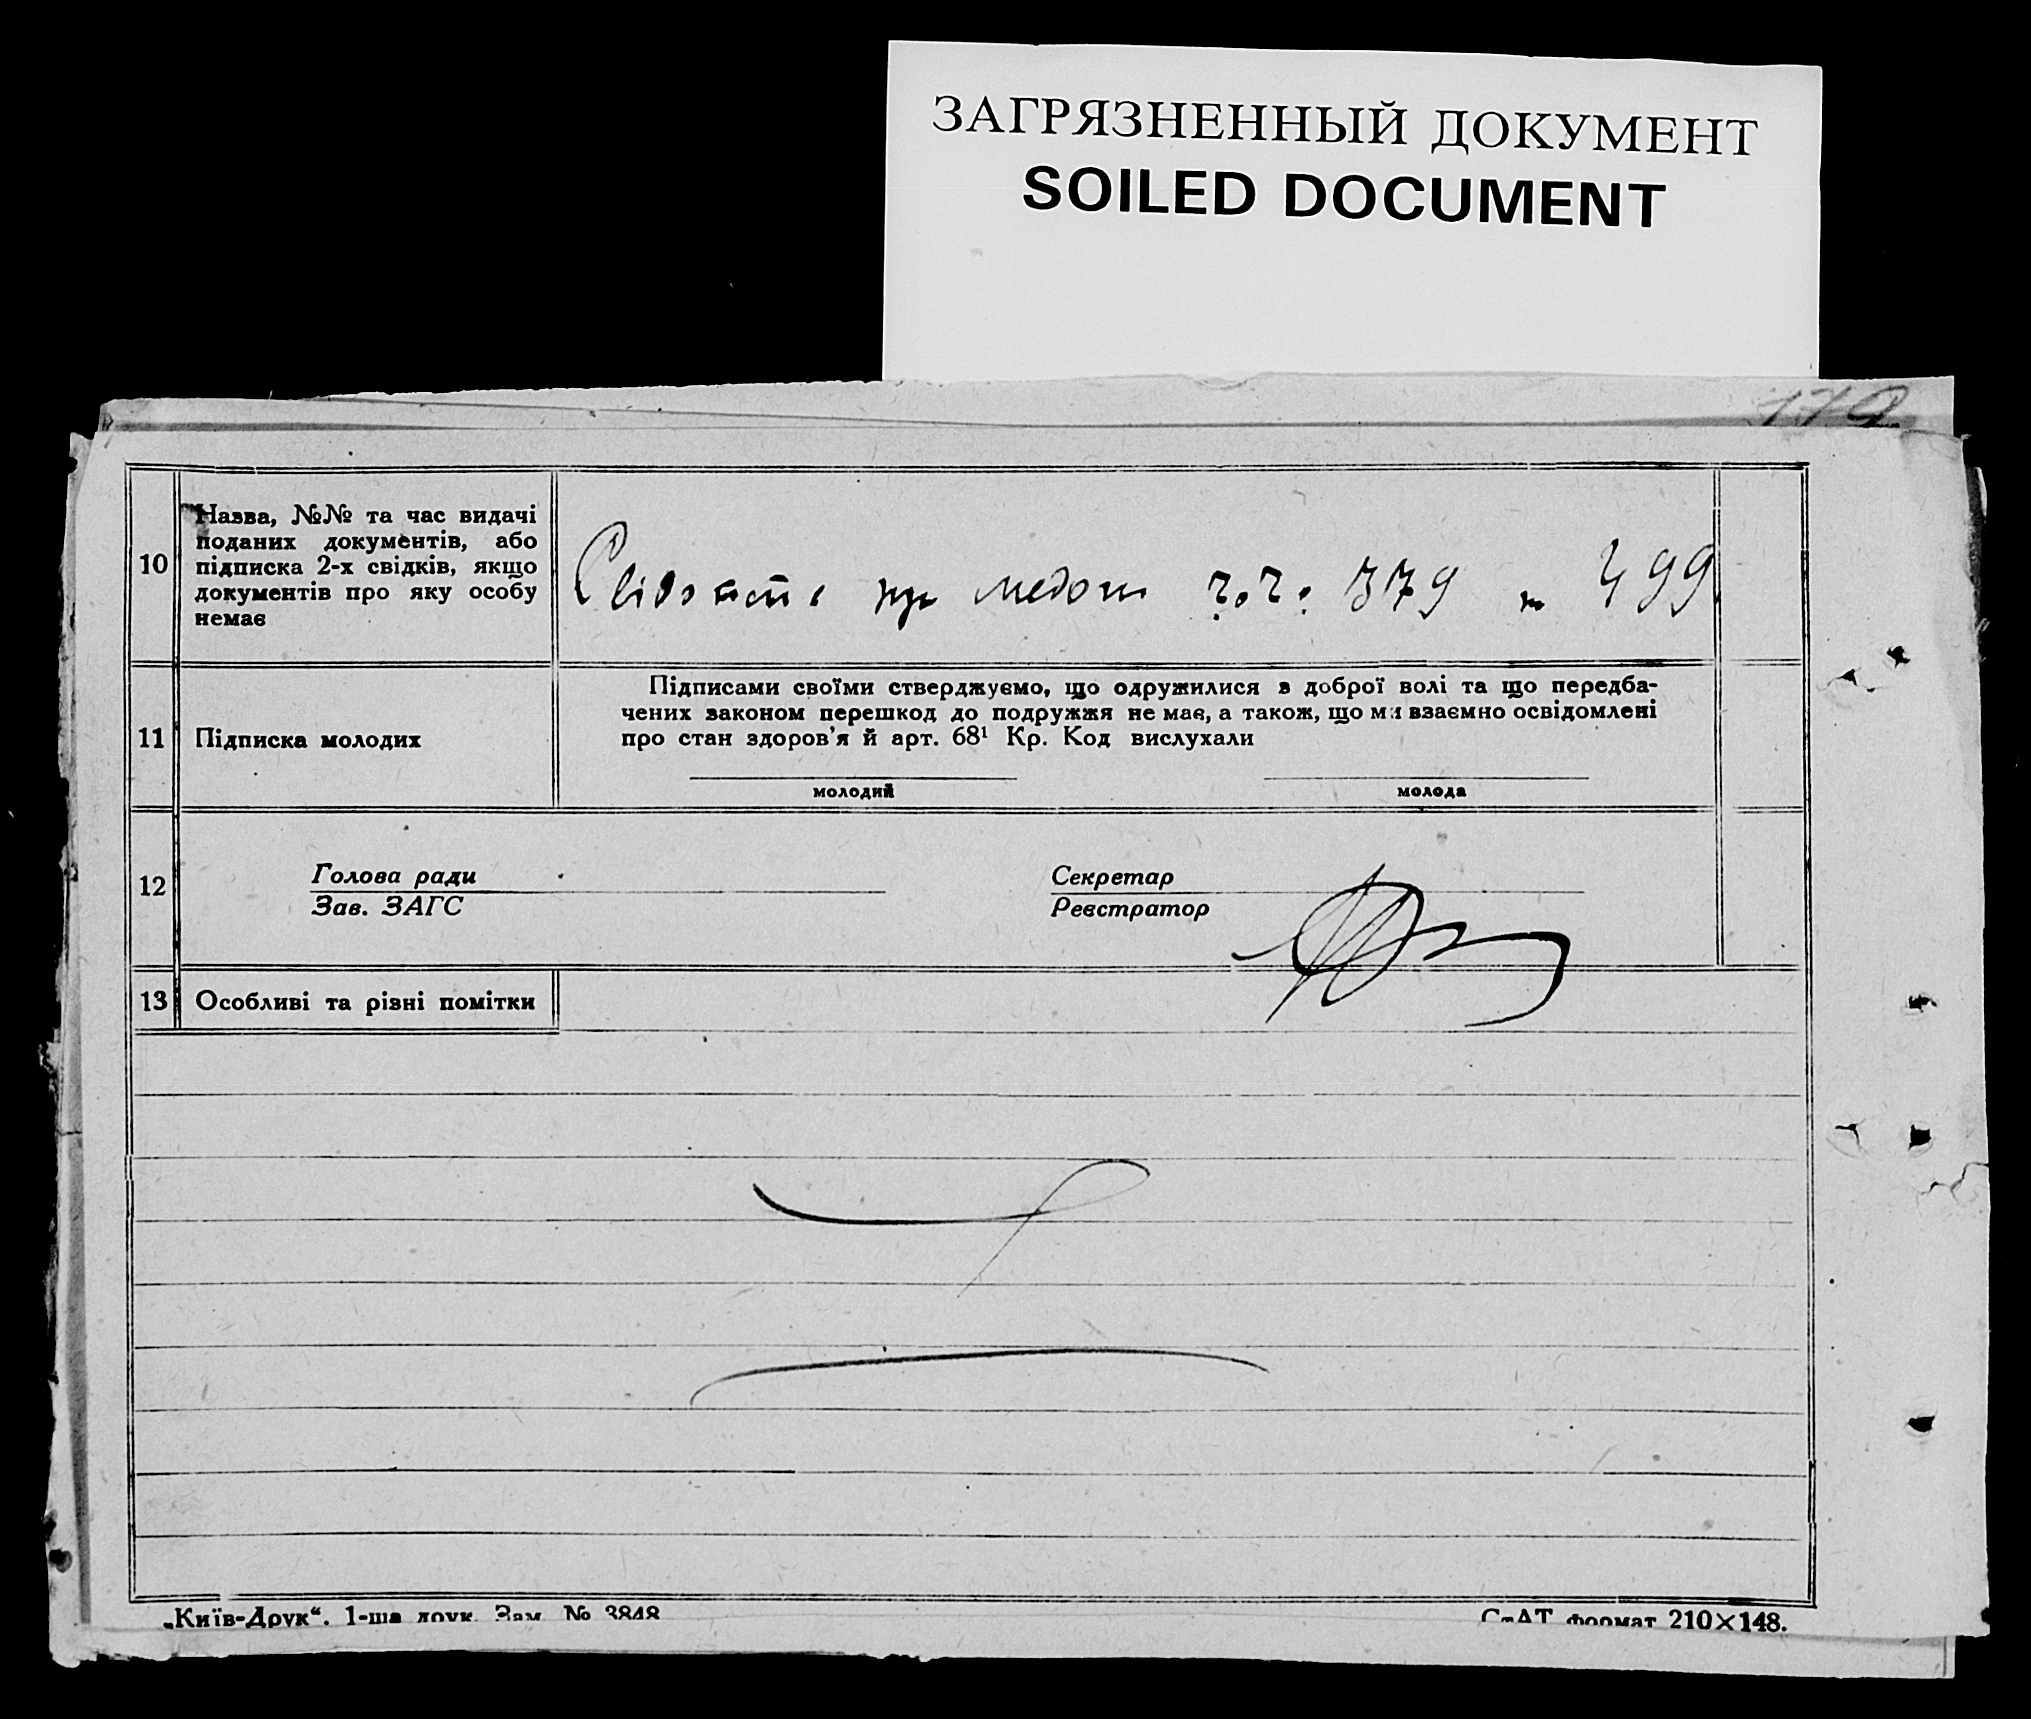 ЗАГРЯЗНЕННЫЙ ДОКУМЕНТ
SOILED DOCUMENT
179
10
Назва, №№ та час видачі
поданих документів, або
підписка 2-х свідків, якщо
документів про яку особу
немає
379 499
11
Підписка молодих
Підписами своїми стверджуємо, що одружилися з доброї волі та що передба-
чених законом перешкод до подружжя не має, а також, що ми взаємно освідомлені
про стан здоров'я й арт. 68¹ Кр. Код вислухали
молодий
молода
12
Голова ради
Зав. ЗАГС
Секретар
Реєстратор
13
Особливі та різні помітки
„Київ-Друк“. 1-ша друк. Зам. № 3848
СтАТ формат 210×148.